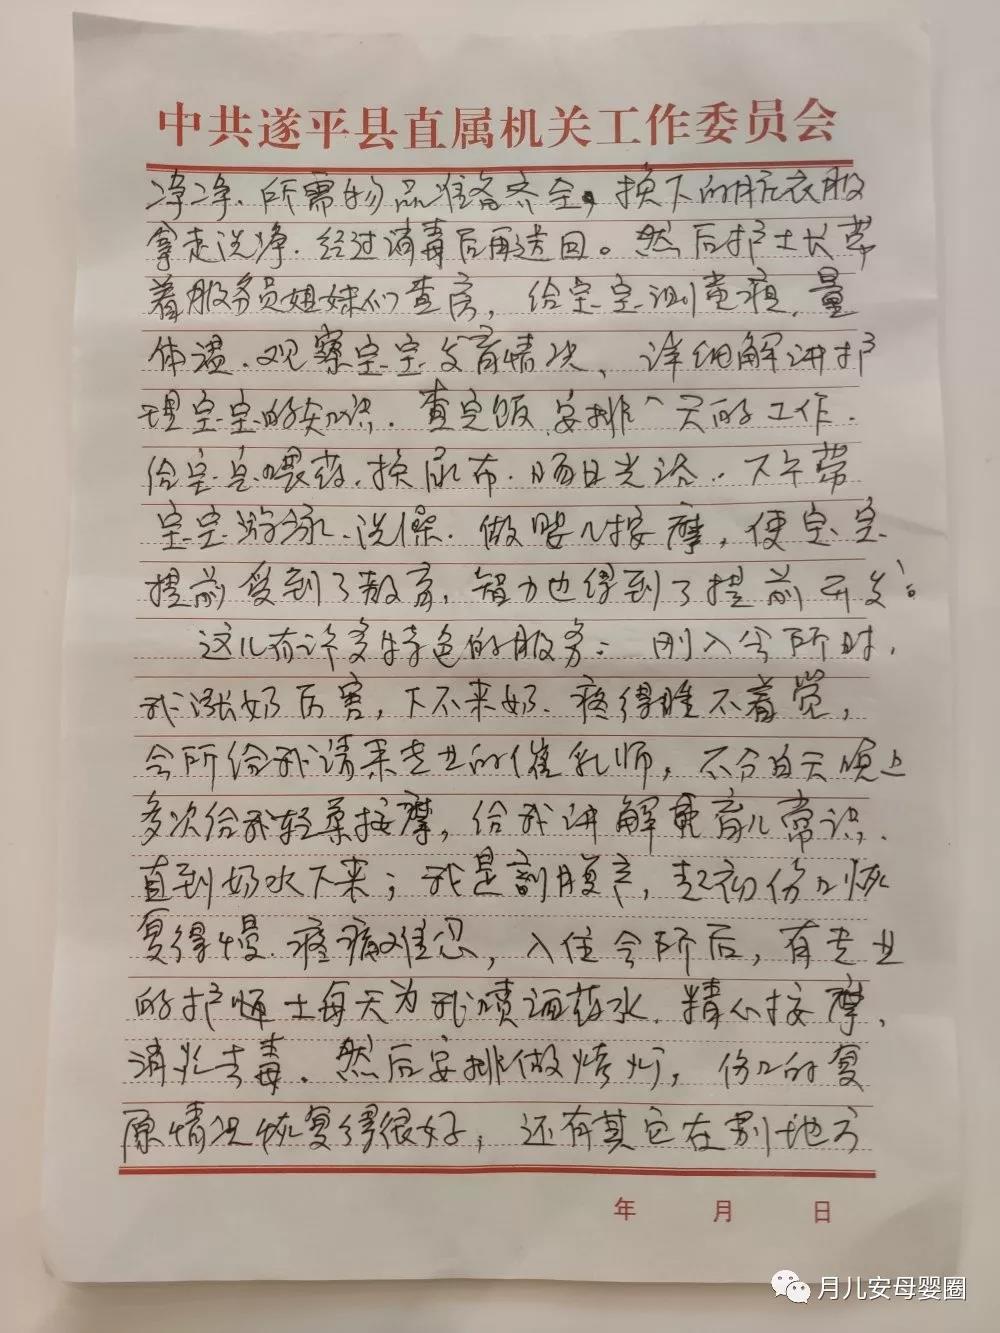 中共遂平县直属机关工作委员会
净净、所需物品准备齐全，换下的脏衣服
拿走洗净，经过消毒后再送回。然后护士长带
着服务员姐妹们查房，给宝宝测黄疸、量
体温、观察宝宝发育情况、详细解讲护
理宝宝的知识。查完饭、安排一天的工作。
给宝宝喂药、换尿布、晒日光浴、下午带
宝宝游泳、洗澡、做婴儿按摩，使宝宝
提前受到了教育，智力也得到了提前开发。
这儿有许多特色的服务：刚入会所时，
我涨奶厉害，下不来奶、疼得睡不着觉，
会所给我请来专业的催乳师，不分白天晚上
多次给我轻柔按摩，给我讲解育儿常识，
直到奶水下来；我是剖腹产，起初伤口恢
复得慢、疼痛难忍，入住会所后，有专业
的护士每天为我喷洒药水、精心按摩、
消炎去毒。然后安排做烤灯，伤口的复
原情况恢复得很好，还有其它在别地方
年 月 日
月儿安母婴圈